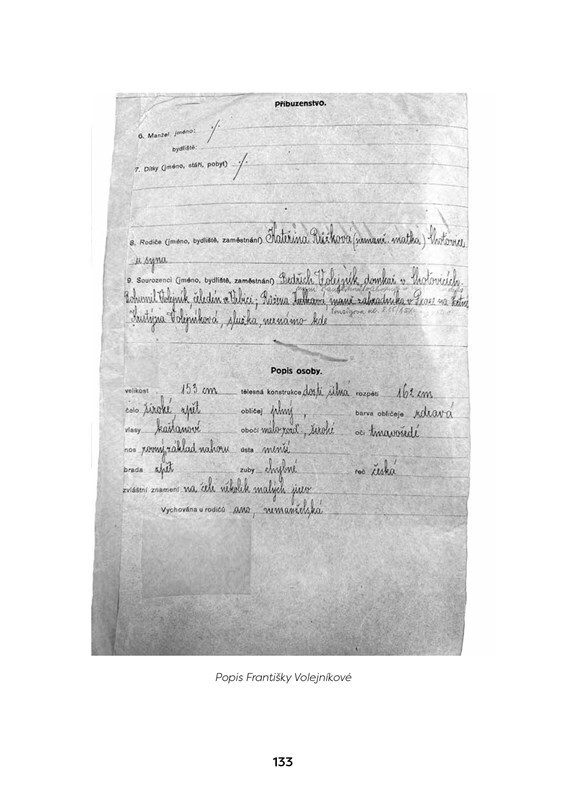 Příbuzenstvo.
6. Manžel, jméno: ./.
bydliště:
7. Dítky (jméno, stáří, pobyt) ./.
8. Rodiče (jméno, bydliště, zaměstnání) Kateřina Růžková (nemanž. matka) Lhotovice
u syna
9. Sourozenci (jméno, bydliště, zaměstnání) Bedřich Volejník, domkař v Lhotovicích,
Bohumil Volejník, čeledín z Vrbice, Růžena manž. zahradníka v Praze na
Kristýna Volejníková, služka, neznámo kde
Popis osoby.
velikost 153 cm tělesná konstrukce dosti silná rozpětí 162 cm
čelo široké zpět obličej plný barva obličeje zdravá
vlasy kaštanové obočí málo rozd., široké oči tmavošedé
nos rovný základ nahoru ústa menší
brada zpět zuby chybné řeč česká
zvláštní znamení na čele několik malých jizev
Vychována u rodičů ano, nemanželská
Popis Františky Volejníkové
133